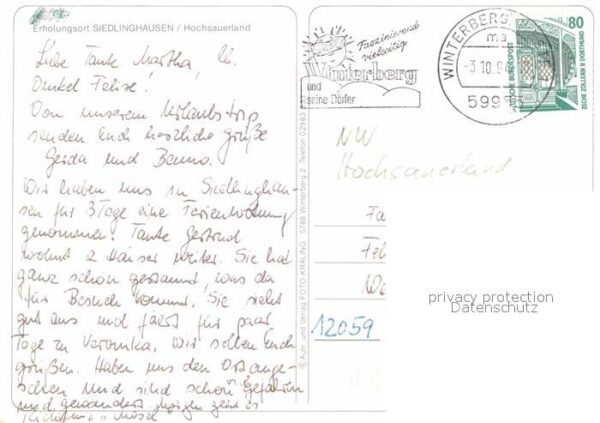 Erholungsort SIEDLINGHAUSEN / Hochsauerland
Liebe Tante Martha, lb.
Onkel Felise!
Von unserem Urlaubstrip
senden Euch herzliche Grüße
Gerda und Benno.
Wir haben uns in Siedlinghau-
sen für 3 Tage eine Ferienwohnung
genommen. Tante Gertrud
wohnt 2 Häuser weiter. Sie hat
ganz schön gestaunt, was da
für Besuch kommt. Sie sieht
gut aus und fährt für paar
Tage zu Veronika. Wir sollen Euch
grüßen. Haben uns den Ort ange-
sehen und sind schon gefahren
und gewandert. Morgen geht es
Richtung Mosel
© Aufn. und Verlag FOTO-KRÄLING · 5788 Winterberg 2 Telefon 02983
Faszinierend
vielseitig
Winterberg
und
seine Dörfer
WINTERBERG
ma
-3.10.9
599
80
DEUTSCHE BUNDESPOST
ZECHE ZOLLERN II DORTMUND
NW
Hochsauerland
Fa
Fel
We
12059
privacy protection
Datenschutz